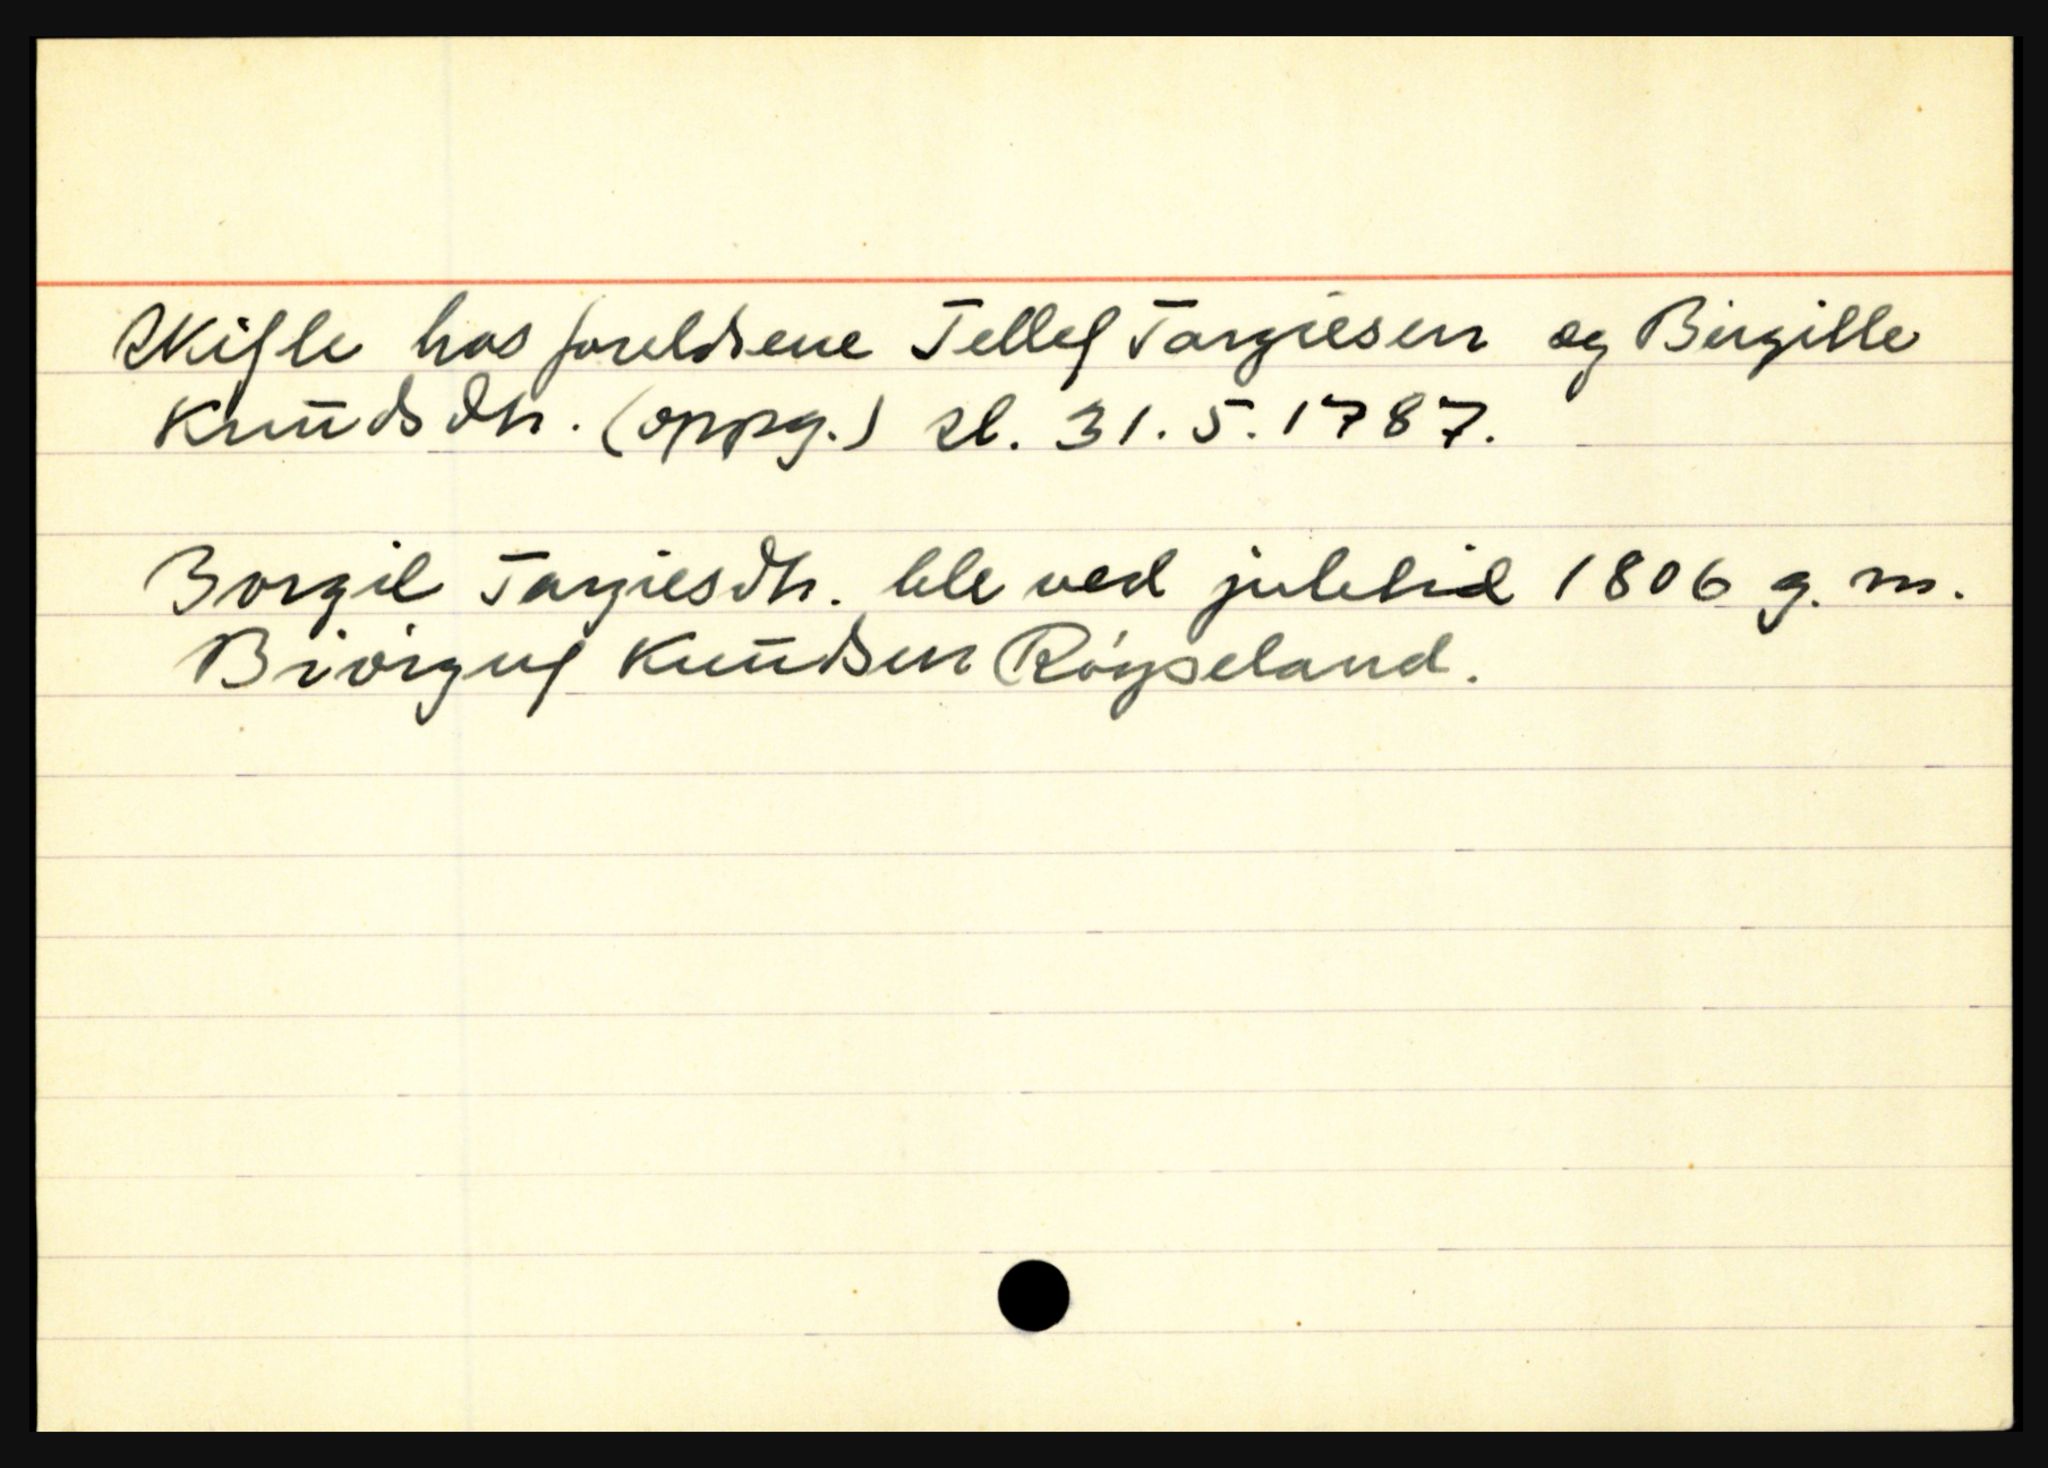 Skifte hos foreldrene Tellef Targiesen og Birgitte
Knudsdtr. (oppg.) sl. 31.5.1787.
Borgil Targiesdtr. ble ved juletid 1806 g. m.
Biørguf Knudsen Røyseland.